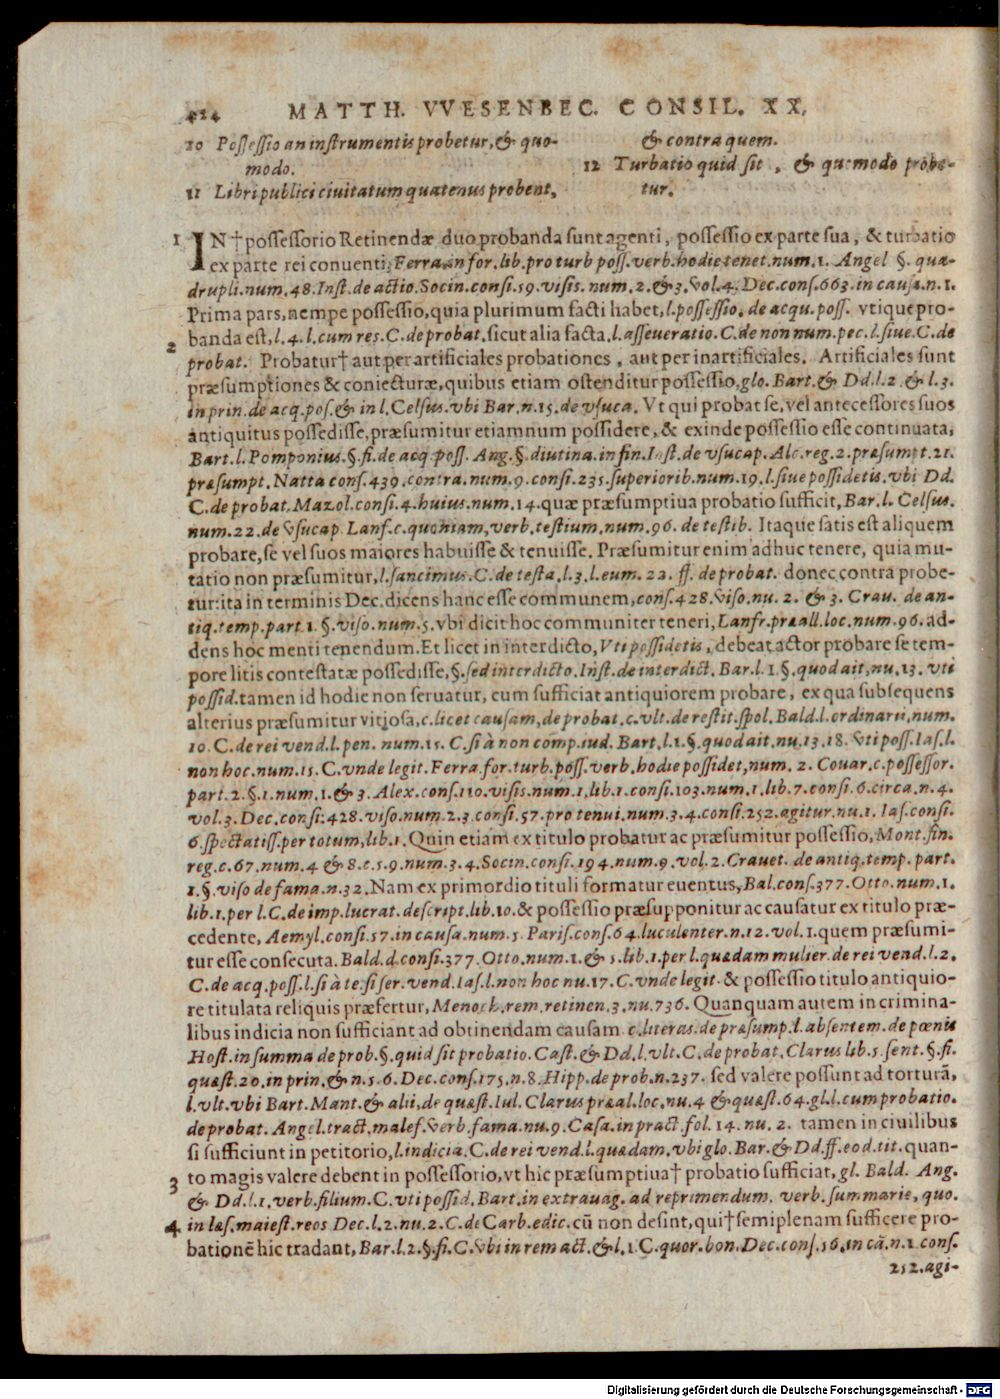 424 MATTH. VVESENBEC. CONSIL. XX.
10 Possessio an instrumentis probetur, & quo-
modo.
11 Libri publici ciuitatum quatenus probent,
& contra quem.
12 Turbatio quid sit, & quomodo probe-
tur.
1 IN † possessorio Retinendæ duo probanda sunt agenti, possessio ex parte sua, & turbatio
ex parte rei conuenti, Ferra. in for. lib. pro turb poss. verb. hodie tenet. num. 1. Angel §. qua-
drupli. num. 48. Inst. de actio. Socin. consi. 59. visis. num. 2. & 3. vol. 4. Dec. cons. 663. in causa. n. 1.
Prima pars, nempe possessio, quia plurimum facti habet, l. possessio. de acqu. poss. vtique pro-
banda est, l. 4. l. cum res. C. de probat. sicut alia facta, l. asseueratio. C. de non num. pec. l. siue. C. de
2 probat. Probatur † aut per artificiales probationes, aut per inartificiales. Artificiales sunt
præsumptiones & coniecturæ, quibus etiam ostenditur possessio, glo. Bart. & Dd. l. 2. & l. 3.
in prin. de acq. pos. & in l. Celsus. vbi Bar. n. 15. de vsuca. Vt qui probat se, vel antecessores suos
antiquitus possedisse, præsumitur etiamnum possidere, & exinde possessio esse continuata,
Bart. l. Pomponius. §. fi. de acq. poss. Ang. §. diutina. in fin. Inst. de vsucap. Alc. reg. 2. præsumpt. 21.
præsumpt. Natta cons. 439. contra. num. 9. consi. 235. superiorib. num. 19. l. siue possidetis. vbi Dd.
C. de probat. Mazol. consi. 4. huius. num. 14. quæ præsumptiua probatio sufficit, Bar. l. Celsus.
num. 22. de vsucap. Lanf. c. quoniam, verb. testium. num. 96. de testib. Itaque satis est aliquem
probare, se vel suos maiores habuisse & tenuisse. Præsumitur enim adhuc tenere, quia mu-
tatio non præsumitur, l. sancimus. C. de testa. l. 3. l. eum. 22. ff. de probat. donec contra probe-
tur: ita in terminis Dec. dicens hanc esse communem, cons. 428. viso. nu. 2. & 3. Crau. de an-
tiq. temp. part. 1. §. viso. num. 5. vbi dicit hoc communiter teneri, Lanfr. præall. loc. num. 96. ad-
dens hoc menti tenendum. Et licet in interdicto, Vti possidetis, debeat actor probare se tem-
pore litis contestatæ possedisse, §. sed interdicto. Inst. de interdict. Bar. l. 1. §. quod ait, nu. 13. vti
possid. tamen id hodie non seruatur, cum sufficiat antiquiorem probare, ex qua subsequens
alterius præsumitur vitiosa, c. licet causam, de probat. c. vlt. de restit. spol. Bald. l. ordinarii, num.
10. C. de rei vend. l. pen. num. 15. C. si à non comp. iud. Bart. l. 1. §. quod ait. nu. 13. 18. vti poss. Ias. l.
non hoc. num. 15. C. vnde legit. Ferra. for. turb. poss. verb. hodie possidet, num. 2. Couar. c. possessor.
part. 2. §. 1. num. 1. & 3. Alex. cons. 110. visis num. 1. lib. 1. consi. 103. num. 1. lib. 7. consi. 6. circa. n. 4.
vol. 3. Dec. consi. 428. viso. num. 2. 3. consi. 57. pro tenui. num. 3. 4. consi. 252. agitur. nu. 1. Ias. consi.
6. spectatiss. per totum, lib. 1. Quin etiam ex titulo probatur ac præsumitur possessio, Mont. fin.
reg. c. 67. num. 4 & 8. c. 5. 9. num. 3. 4. Socin. consi. 194. num. 9. vol. 2. Crauet. de antiq. temp. part.
1. §. viso de fama. n. 32. Nam ex primordio tituli formatur euentus, Bal. cons. 377. Otto. num. 1.
lib. 1. per l. C. de imp. lucrat. descript. lib. 10. & possessio præsupponitur ac causatur ex titulo præ-
cedente, Aemyl. consi. 57. in causa. num. 5. Paris. cons. 64. luculenter. n. 12. vol. 1. quem præsumi-
tur esse consecuta. Bald. d. consi. 377. Otto. num. 1. & 5. lib. 1. per l. quædam mulier. de rei vend. l. 2.
C. de acq. poss. l. si à te. fi ser. vend. Ias. l. non hoc nu. 17. C. vnde legit. & possessio titulo antiquio-
re titulata reliquis præfertur, Menoch. rem. retinen. 3. nu. 736. Quanquam autem in crimina-
libus indicia non sufficiant ad obtinendam causam c. literas. de præsump. l. absentem. de pœnis
Host. in summa de prob. §. quid sit probatio. Cast. & Dd. l. vlt. C. de probat. Clarus lib. 5. sent. §. fi.
quæst. 20. in prin. & n. 5. 6. Dec. cons. 175. n. 8. Hipp. de prob. n. 237. sed valere possunt ad torturã,
l. vlt. vbi Bart. Mant. & alii, de quæst. Iul. Clarus præal. loc. nu. 4 & quæst. 64. gl. l. cum probatio.
de probat. Angel. tract. malef. verb. fama. nu. 9. Casa. in pract. fol. 14. nu. 2. tamen in ciuilibus
si sufficiunt in petitorio, l. indicia. C. de rei vend. l. quædam. vbi glo. Bar. & Dd. ff. eod. tit. quan-
3 to magis valere debent in possessorio, vt hic præsumptiua † probatio sufficiat, gl. Bald. Ang.
& Dd. l. 1. verb. filium. C. vti possid. Bart. in extrauag. ad reprimendum. verb. summarie, quo.
4 in læs. maiest. reos Dec. l. 2. nu. 2. C. de Carb. edic. cũ non desint, qui † semiplenam sufficere pro-
bationẽ hic tradant, Bar. l. 2. §. fi. C. vbi in rem act. & l. 1. C. quor. bon. Dec. cons. 56. in cã. n. 1. cons.
252. agi-
Digitalisierung gefördert durch die Deutsche Forschungsgemeinschaft - DFG